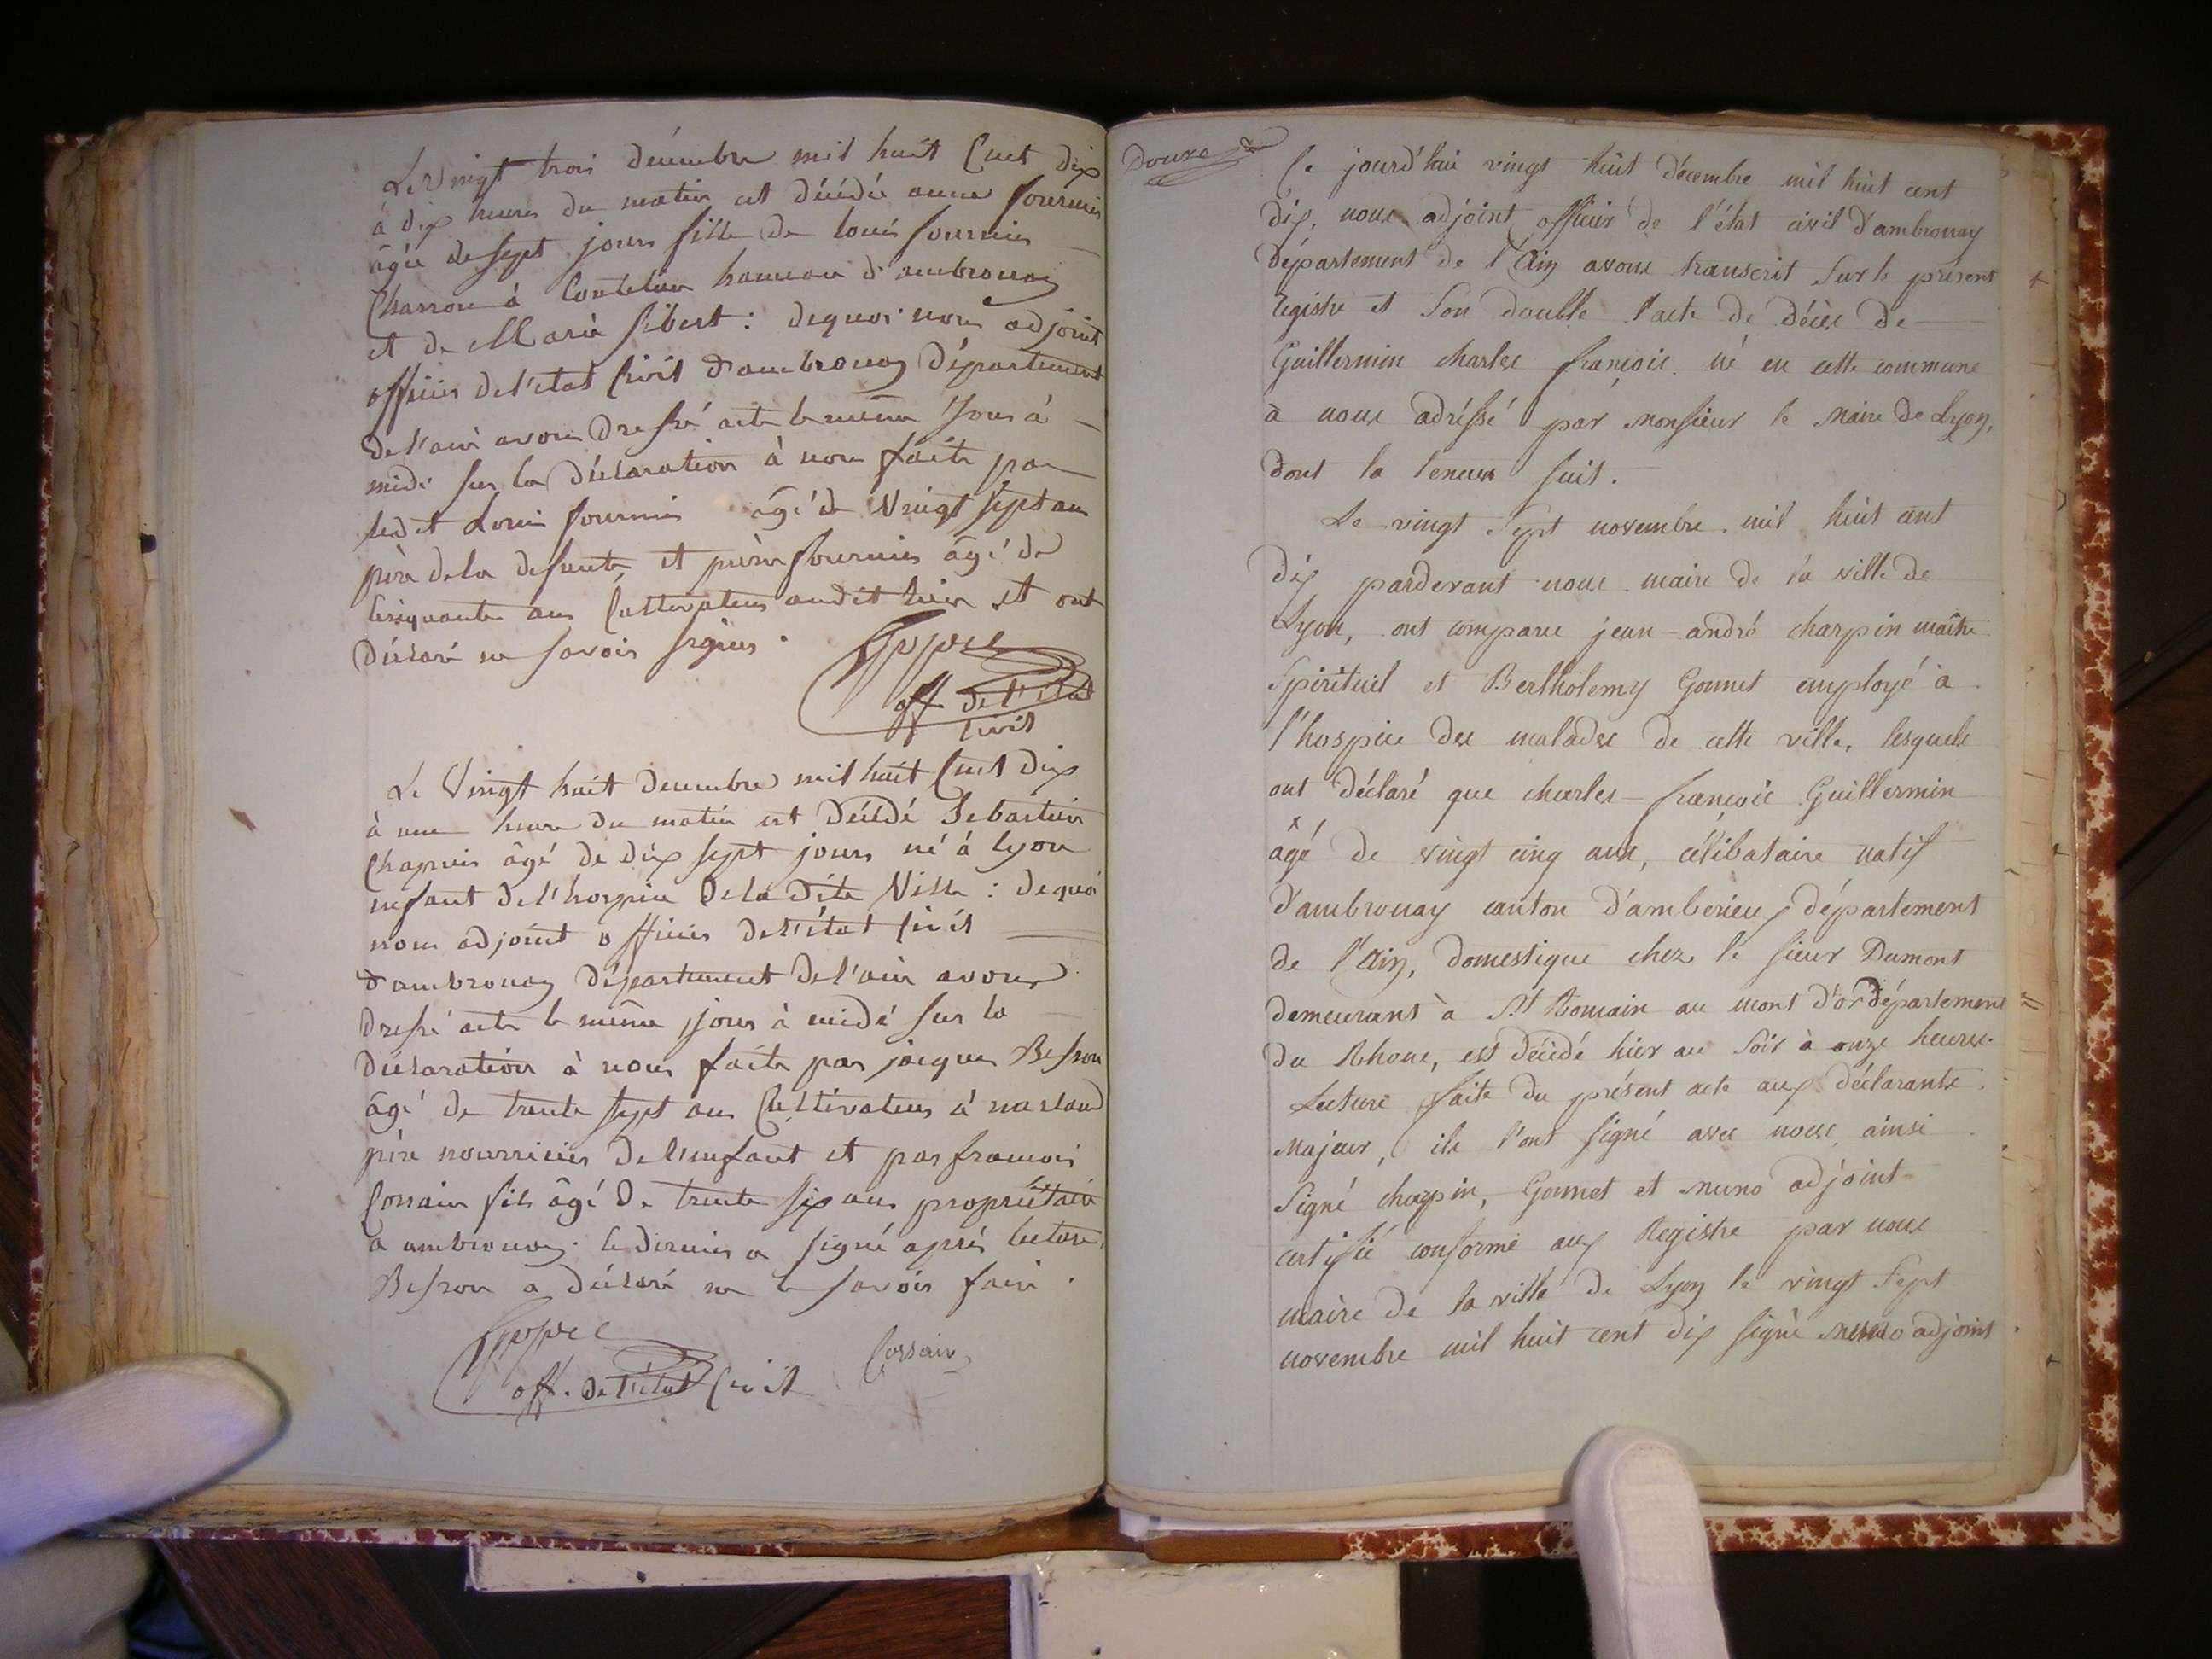 Le Vingt trois décembre mil huit Cent dix
à dix heures du matin est décédée anne fournier
âgée de sept jours fille de Louis fournier
Charron à Coutelieu hameau d'ambronay
et de Marie Sibert : dequoi nous adjoint
officier de l'état Civil d'ambronay Département
de l'ain avons dressé acte le même jour à
midi sur la Déclaration à nous faite par
ledit Louis fournier âgé de Vingt sept ans
père dela defunte, et pierre fournier âgé de
Cinquante ans Cultivateur audit lieu et ont
Déclaré ne savoir signer.
off. de l'état
Civil
Le Vingt huit Decembre mil huit Cent dix
à une heure du matin est Décédé Sebastien
Chapuis âgé de dix sept jours né à Lyon
enfant de l'hospice de la dite Ville : dequoi
nous adjoint officier de l'état Civil
d'ambronay département de l'ain avons
dressé acte le même jour à midi sur la
Déclaration à nous faite par jacques Besson
âgé de trente sept ans Cultivateur à
père nourricier de l'enfant et par francois
Corsain fils âgé de trente six ans propriétaire
à ambronay. le dernier a signé après lecture,
Besson a déclaré ne le savoir faire.
off. de l'état Civil Corsain
Douze
Ce jourd'hui vingt huit décembre mil huit cent
dix, nous adjoint officier de l'état civil d'ambronay
département de l'Ain avons transcrit sur le présent
registre et son double l'acte de décès de
Guillermin charles françois né en cette commune
à nous adréssé par Monsieur le Maire de Lyon,
dont la teneur suit.
Le vingt sept novembre mil huit cent
dix pardevant nous maire de la ville de
Lyon, ont comparu jean-andré charpin maître
Spirituel et Berthelemy Gonnet employé à
l'hospice des malades de cette ville, lesquels
ont déclaré que charles-françois Guillermin
âgé de vingt cinq ans, célibataire natif
d'ambronay canton d'amberieux département
de l'Ain, domestique chez le sieur Dumont
demeurant à St Romain au mont d'or département
du Rhone, est décédé hier au soir à onze heures.
Lecture faite du présent acte aux déclarants
Majeur, ils l'ont signé avec nous. ainsi
Signé charpin, Gonnet et nuno adjoint
certifié conforme aux Registre par nous
maire de la ville de Lyon le vingt sept
novembre mil huit cent dix signé nuno adjoint.